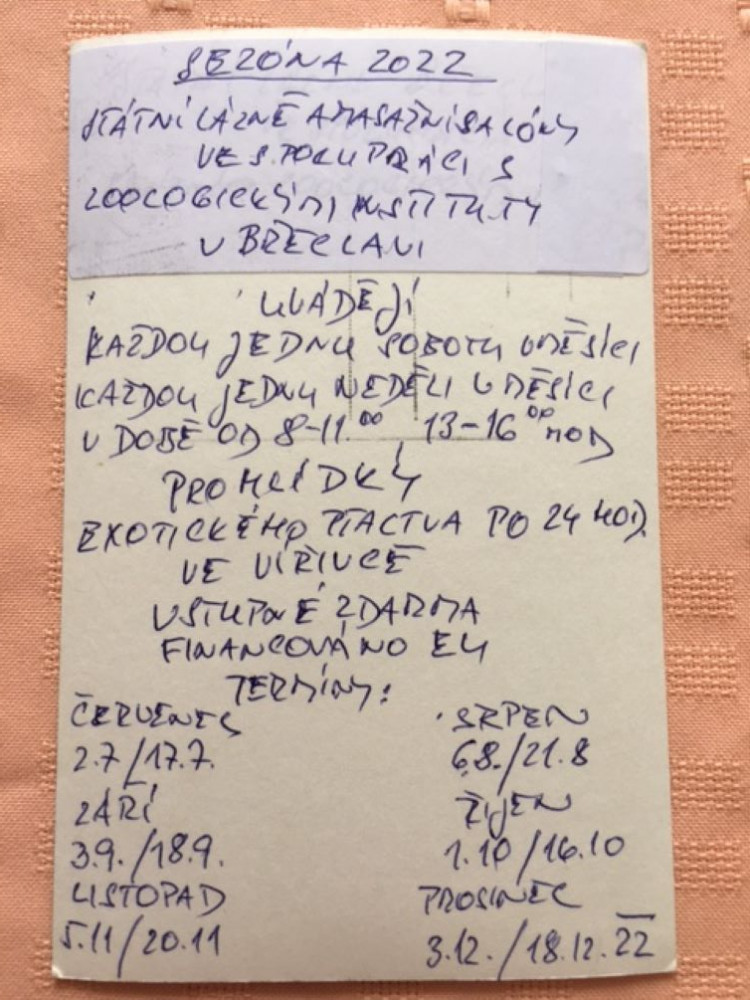 SEZÓNA 2022
STÁTNÍ LÁZNĚ A MASAŽNI SALÓNY
VE SPOLUPRÁCI S
ZOOLOGICKÝMI INSTITUTY
V BŘECLAVI
UVÁDĚJÍ
KAŽDOU JEDNU SOBOTU V MĚSÍCI
KAŽDOU JEDNU NEDĚLI V MĚSÍCI
V DOBĚ OD 8-11.00, 13-16 00 HOD
PROHLÍDKY
EXOTICKÉHO PTACTVA PO 24 HOD.
VE VÍŘIVCE
VSTUPNÉ ZDARMA
FINANCOVÁNO EU
TERMÍNY:
ČERVENEC SRPEN
2.7/17.7. 6.8./21.8
ZÁŘÍ ŘÍJEN
3.9./18.9. 1.10/16.10
LISTOPAD PROSINEC
5.11/20.11 3.12./18.12.22